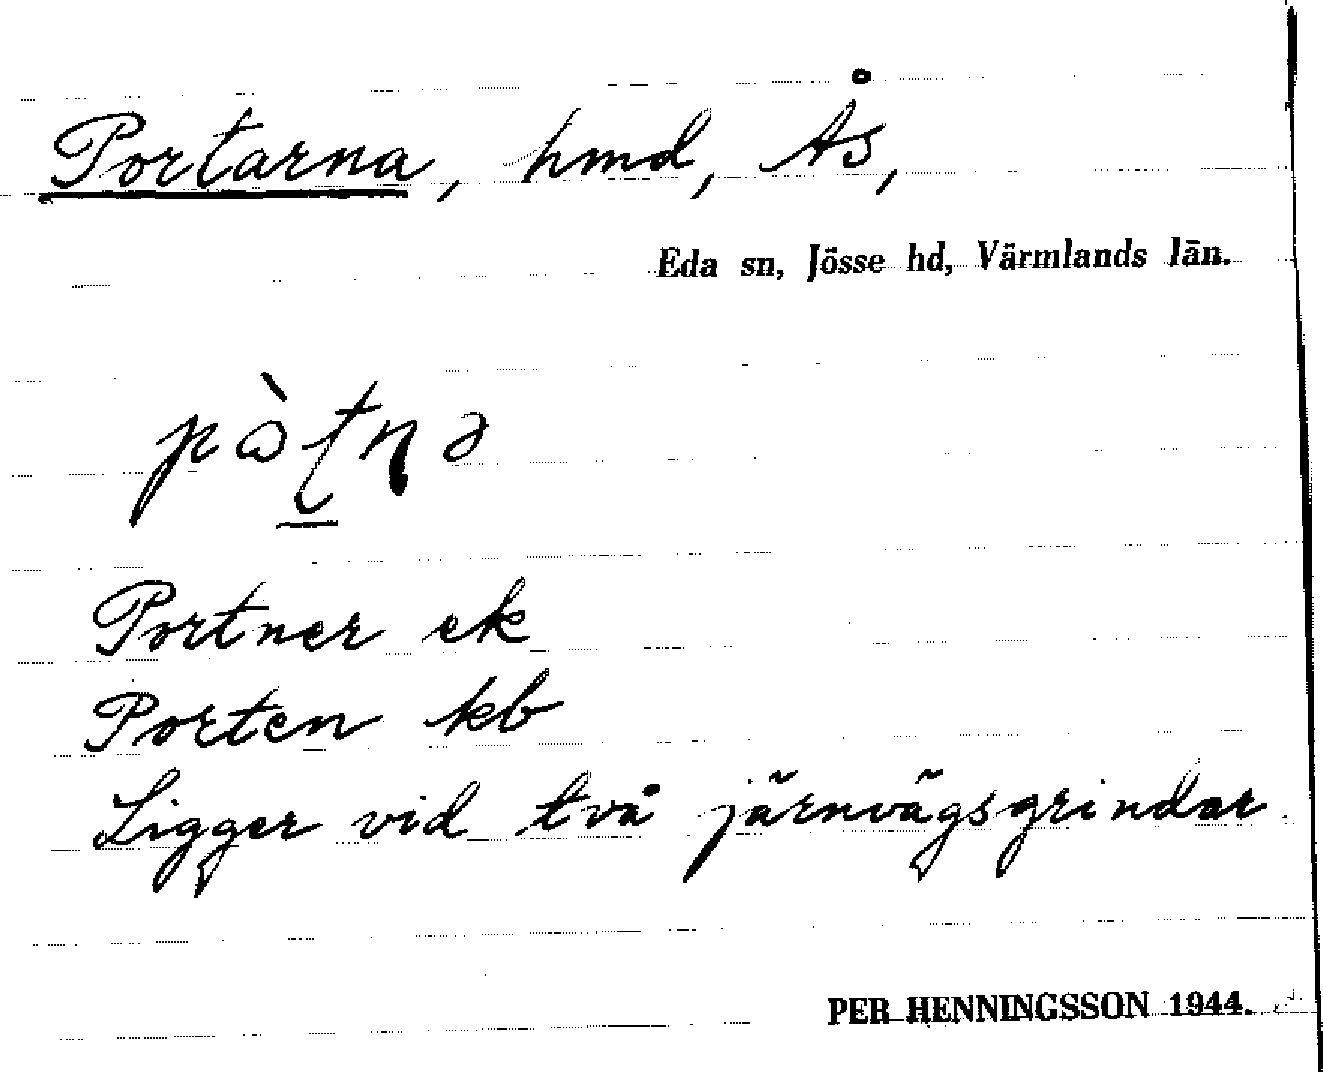 Portarna, hmd, Ås,
Eda sn, Jösse hd, Värmlands län.
Portner ek
Porten kb
Ligger vid två järnvägsgrindar.
PER HENNINGSSON 1944.